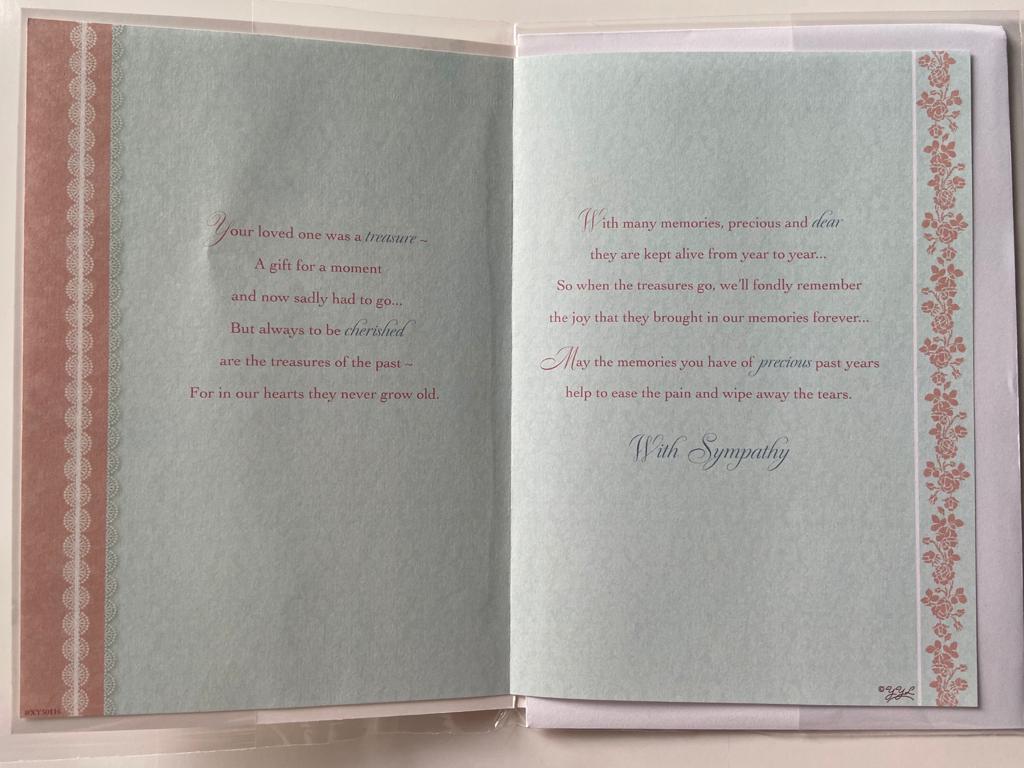 Your loved one was a treasure ~
A gift for a moment
and now sadly had to go...
But always to be cherished
are the treasures of the past ~
For in our hearts they never grow old.
With many memories, precious and dear
they are kept alive from year to year...
So when the treasures go, we'll fondly remember
the joy that they brought in our memories forever...
May the memories you have of precious past years
help to ease the pain and wipe away the tears.
With Sympathy